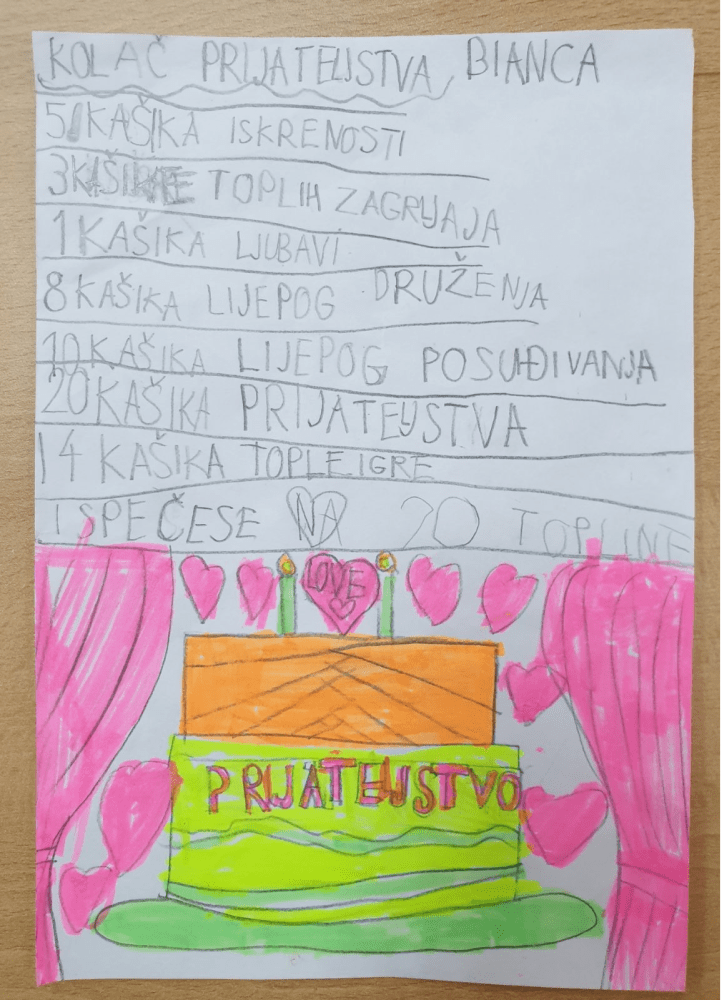 KOLAČ PRIJATELJSTVA, BIANCA
5 KAŠIKA ISKRENOSTI
3 KAŠIKE TOPLIH ZAGRLJAJA
1 KAŠIKA LJUBAVI
8 KAŠIKA LIJEPOG DRUŽENJA
10 KAŠIKA LIJEPOG POSUĐIVANJA
20 KAŠIKA PRIJATELJSTVA
14 KAŠIKA TOPLE IGRE
ISPEČESE NA 20 TOPLINE
LOVE
PRIJATELJSTVO